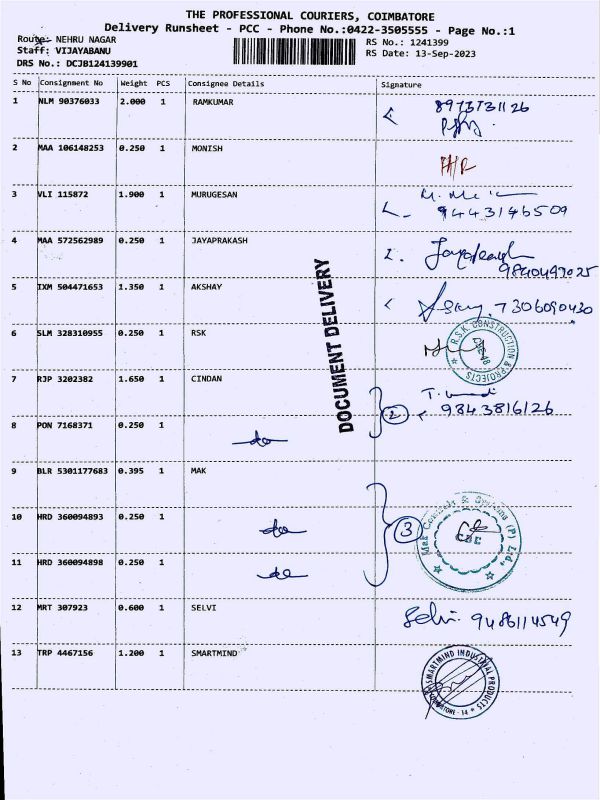 THE PROFESSIONAL COURIERS, COIMBATORE
Delivery Runsheet - PCC - Phone No.:0422-3505555 - Page No.:1
Route:- NEHRU NAGAR
RS No.: 1241399
Staff: VIJAYABANU
RS Date: 13-Sep-2023
DRS No.: DCJB124139901
S No Consignment No Weight PCS Consignee Details Signature
1 NLM 90376033 2.000 1 RAMKUMAR 8973731126
2 MAA 106148253 0.250 1 MONISH
3 VLI 115872 1.900 1 MURUGESAN
9443146509
4 MAA 572562989 0.250 1 JAYAPRAKASH
9840449025
5 IXM 504471653 1.350 1 AKSHAY 7306090430
6 SLM 328310955 0.250 1 RSK R.S.K CONSTRUCTION & PROJECTS
7 RJP 3202382 1.650 1 CINDAN
2 9843816126
8 PON 7168371 0.250 1
do
9 BLR 5301177683 0.395 1 MAK
10 HRD 360094893 0.250 1 do 3 CBE
11 HRD 360094898 0.250 1 do
12 MRT 307923 0.600 1 SELVI Selvi. 9486114549
13 TRP 4467156 1.200 1 SMARTMIND SMARTMIND INDUSTRIAL PRODUCTS
DOCUMENT DELIVERY